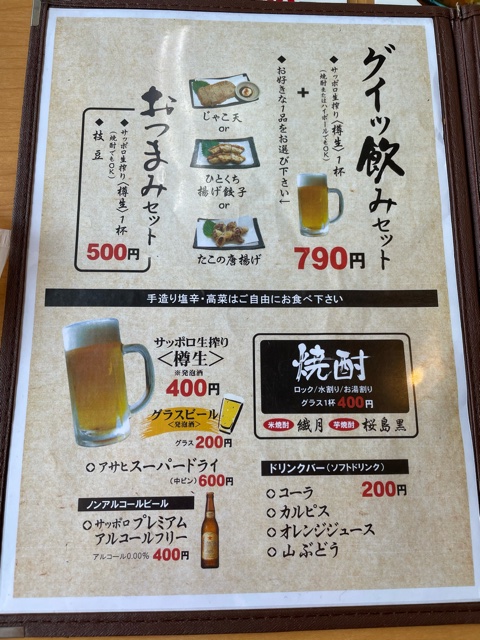 グイッ飲みセット
◆サッポロ生搾り〈樽生〉1杯
(焼酎またはハイボールでもOK)
+
◆お好きな1品をお選び下さい」
じゃこ天
or
ひとくち
揚げ餃子
or
たこの唐揚げ
790円
おつまみセット
◆サッポロ生搾り〈樽生〉1杯
(焼酎でもOK)
◆枝豆
500円
手造り塩辛・高菜はご自由にお食べ下さい
サッポロ生搾り
〈樽生〉
※発泡酒
400円
グラスビール
<発泡酒>
グラス 200円
○アサヒスーパードライ
(中ビン) 600円
ノンアルコールビール
○サッポロプレミアム
アルコールフリー
アルコール0.00% 400円
焼酎
ロック/水割り/お湯割り
グラス1杯 400円
米焼酎 繊月 芋焼酎 桜島黒
ドリンクバー(ソフトドリンク)
○コーラ 200円
○カルピス
○オレンジジュース
○山ぶどう